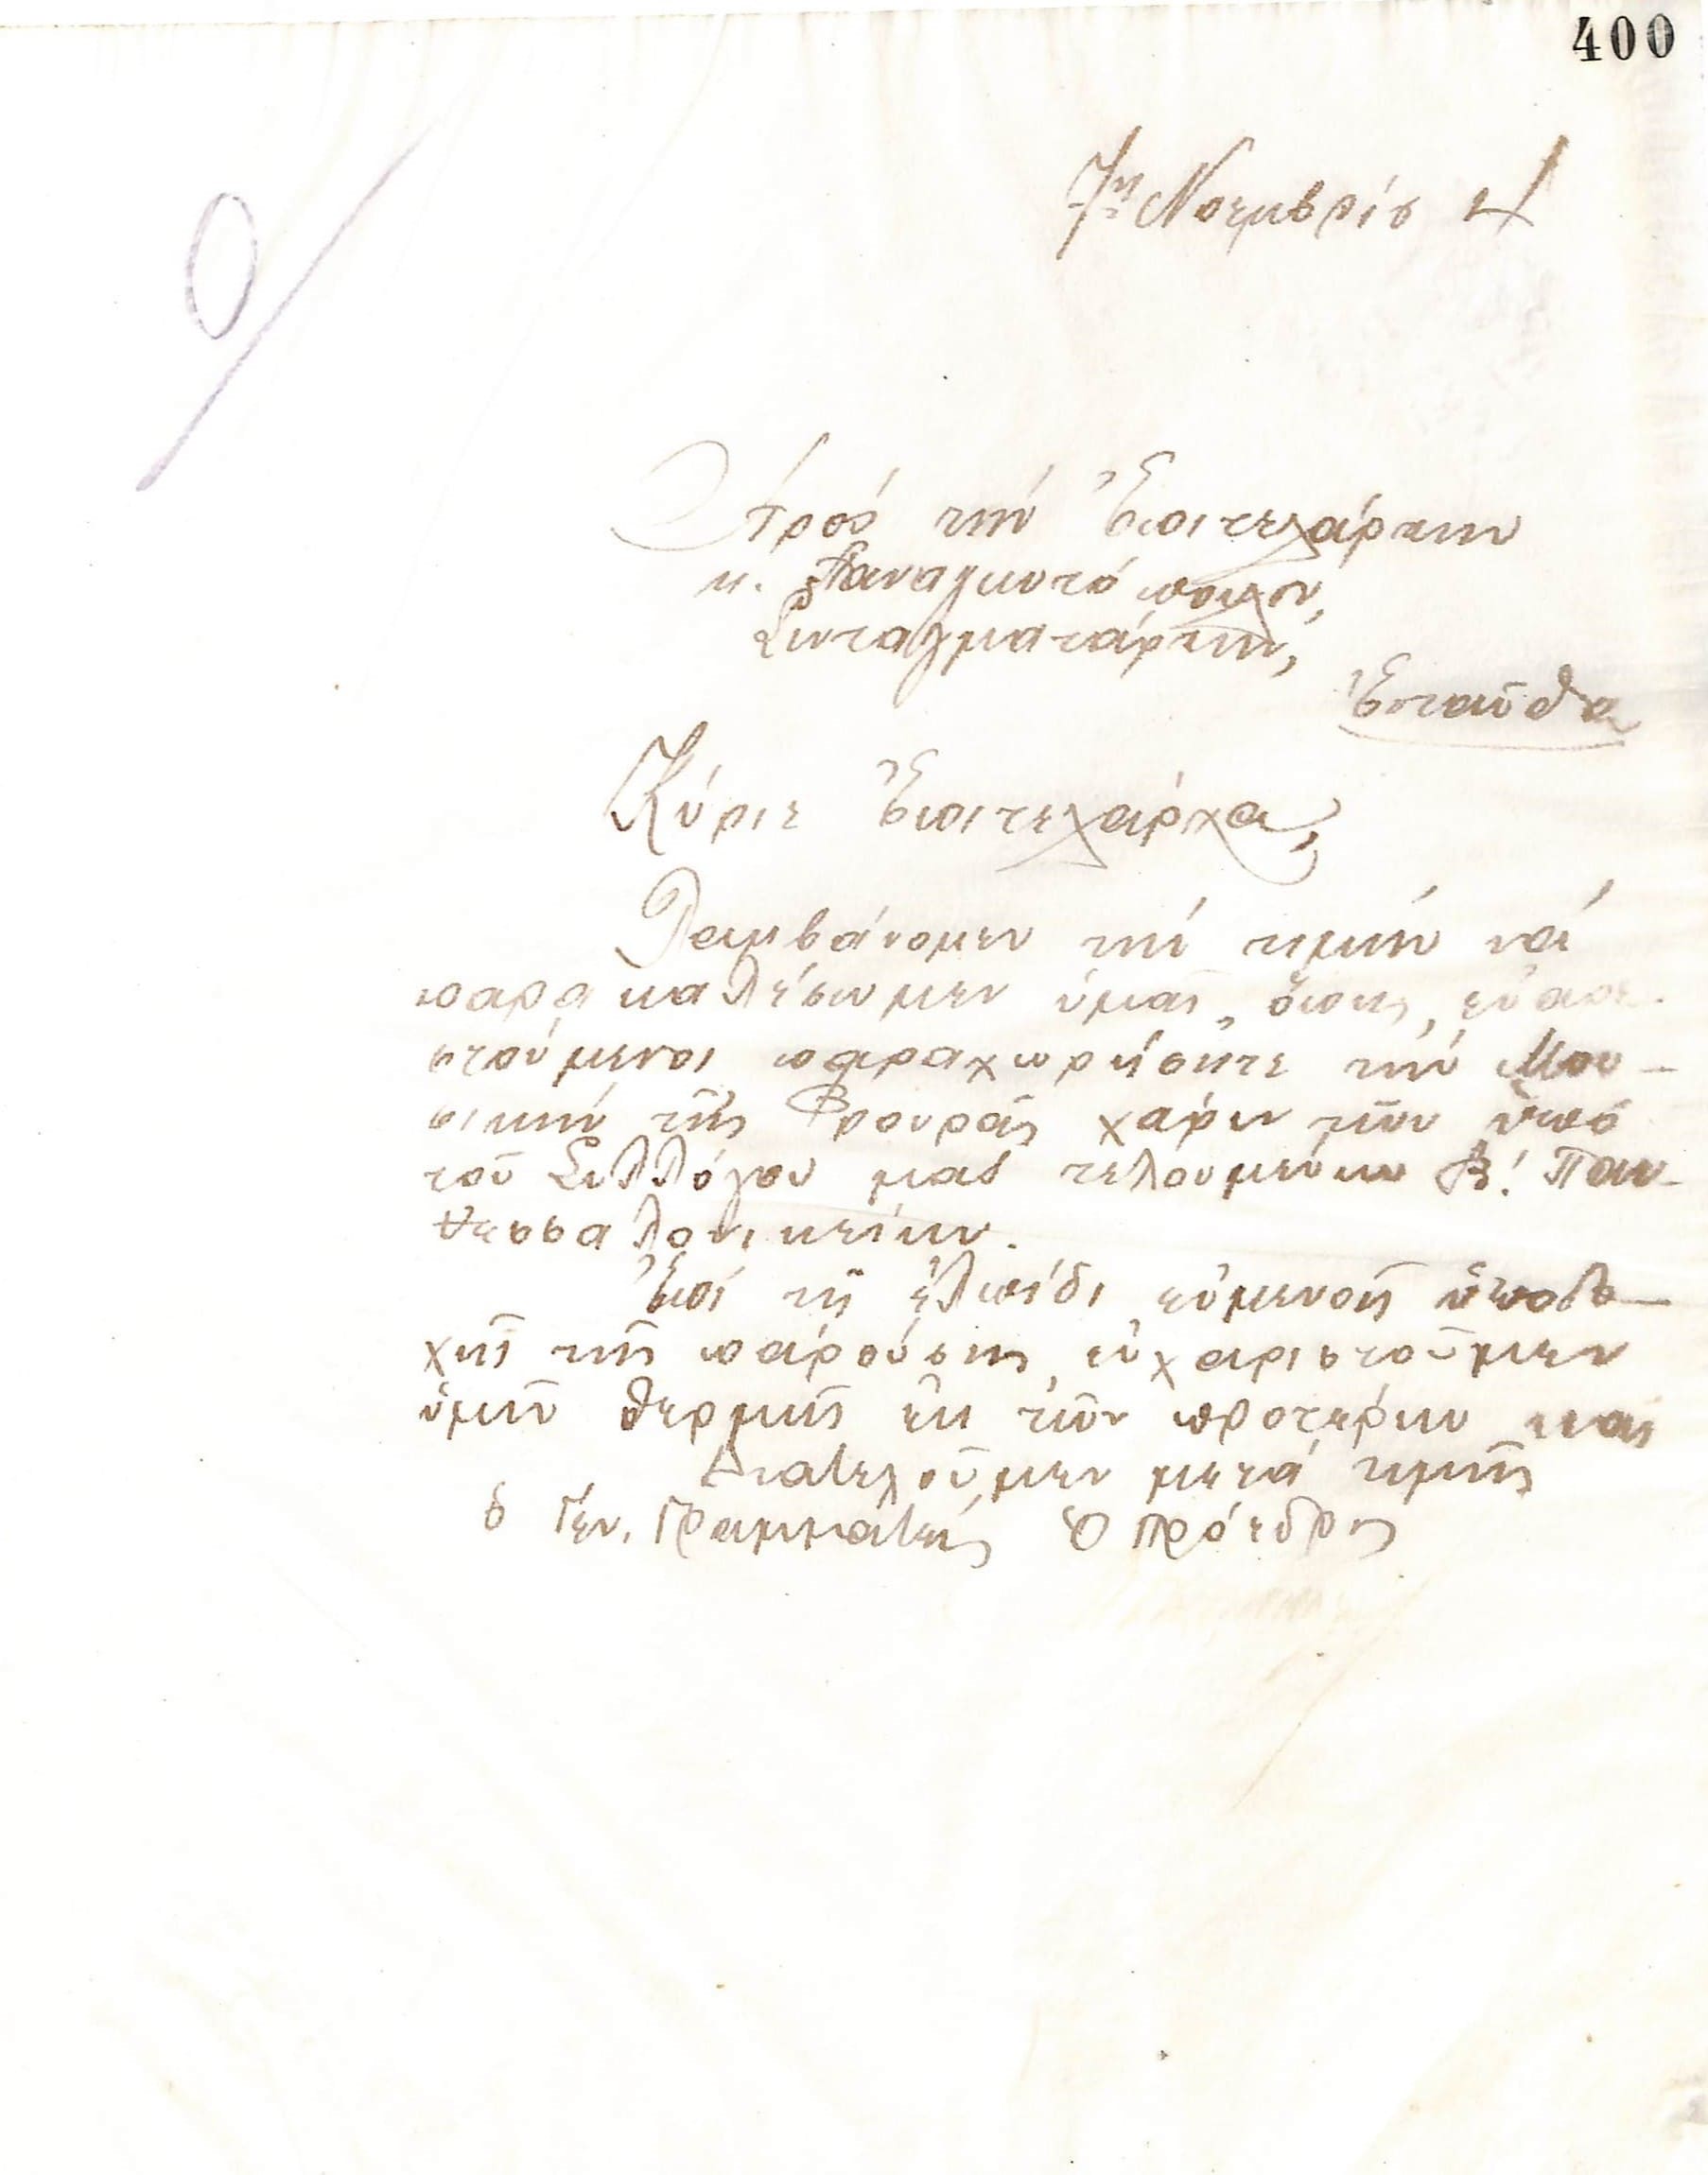 400
7ῃ Νοεμβρίου
Πρός τόν Ἐπιτελάρχην
κ. Παναγιωτόπουλον,
Συνταγματάρχην,
Ἐνταῦθα
Κύριε Ἐπιτελάρχα,
Λαμβάνομεν τήν τιμήν νά
παρακαλέσωμεν ὑμᾶς, ὅπως, εὐαρε-
στούμενοι παραχωρήσητε τήν Μου-
σικήν τῆς Φρουρᾶς χάριν τῶν ὑπό
τοῦ Συλλόγου μας τελουμένων Β! Παν-
θεσσαλονικείων.
Ἐπί τῇ ἐλπίδι εὐμενοῦς ὑποδο-
χῆς τῆς παρούσης, εὐχαριστοῦμεν
ὑμῖν θερμῶς ἐκ τῶν προτέρων καί
Διατελοῦμεν μετά τιμῆς
ὁ Γεν. Γραμματεύς Ὁ Πρόεδρος